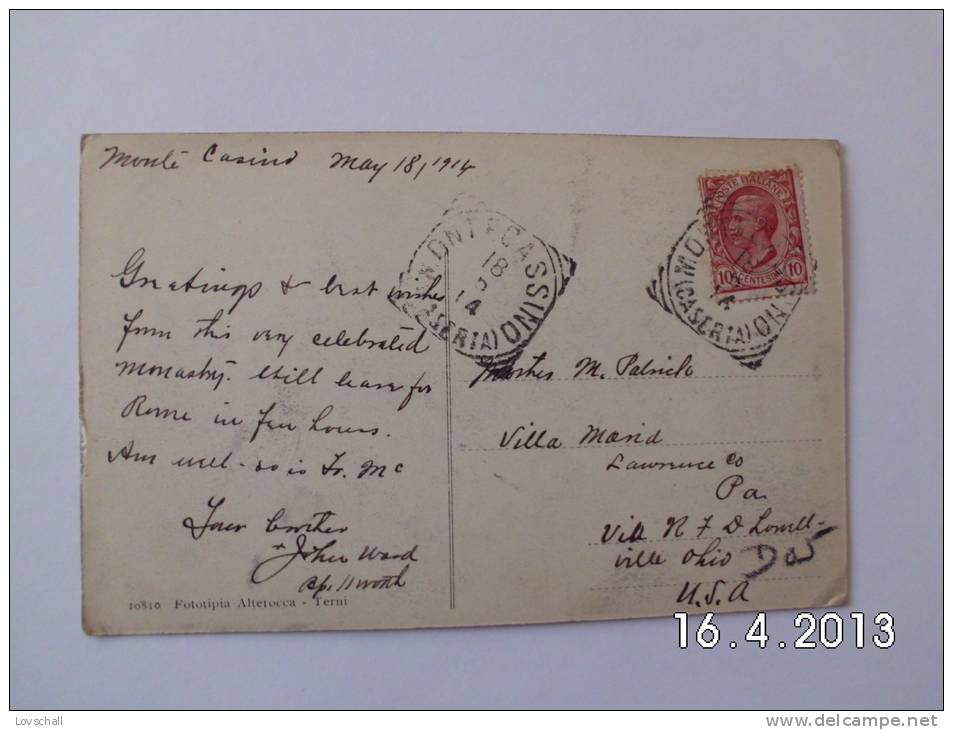 Monte Casino May 18, 1914
Greetings & best wishes
from this very celebrated
monastry. Will leave for
Rome in few hours.
Am well - so is Fr. Mc
Your brother
John Ward
10810 Fototipia Alterocca - Terni
MONTECASSINO
18
5
14
(CASERTA)
POSTE ITALIANE
10 CENTESIMI 10
MONTECASSINO
18
14
(CASERTA)
M. Patrick
Villa Maria
Lawrence Co
Pa.
Via R F D Lowell-
ville Ohio
U.S.A
16.4.2013
Lovschall
www.delcampe.net